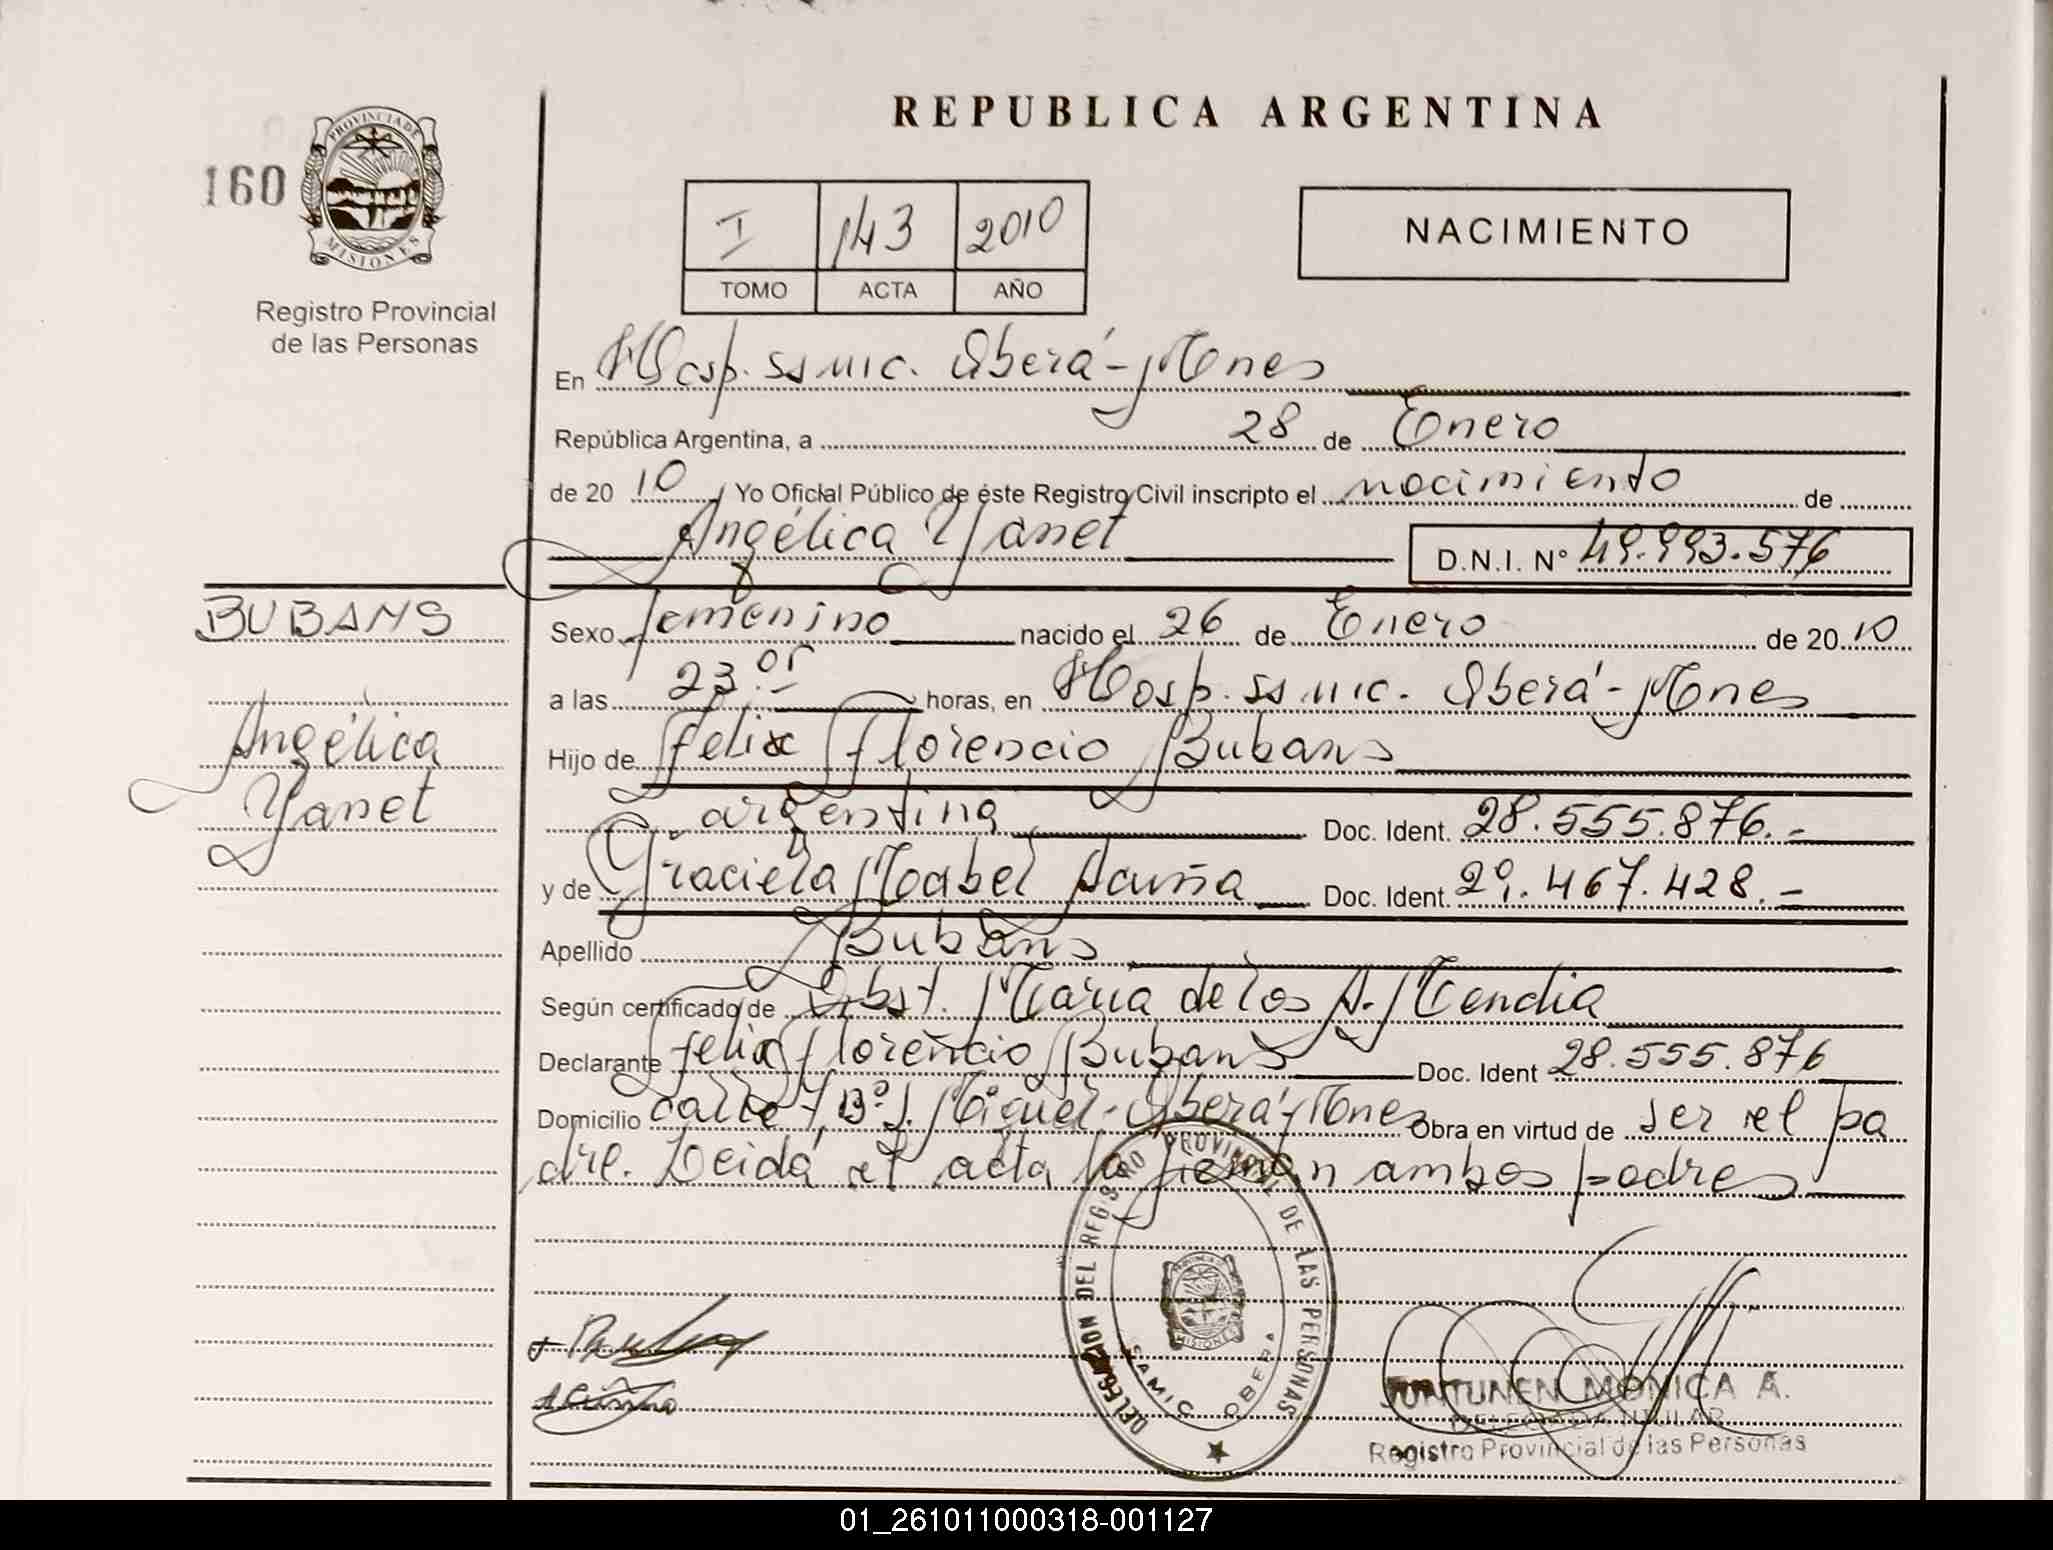 REPUBLICA ARGENTINA
160
PROVINCIA DE
MISIONES
Registro Provincial
de las Personas
I 143 2010
TOMO ACTA AÑO
NACIMIENTO
En Hosp. ssmic. Oberá - Mnes
República Argentina, a 28 de Enero
de 20 10, Yo Oficial Público de éste Registro Civil inscripto el nacimiento de
Angélica Yanet
D.N.I. N° 49.993.576
BUBANS
Angélica
Yanet
Sexo femenino nacido el 26 de Enero de 20 10
a las 23 horas, en Hosp. ssmic. Oberá - Mnes
Hijo de Felix Florencio Bubans
argentina Doc. Ident. 28.555.876.-
y de Graciela Mabel Acuña Doc. Ident. 29.467.428.-
Apellido Bubans
Según certificado de Obst. María de los A. Mendia
Declarante Felix Florencio Bubans Doc. Ident 28.555.876
Domicilio calle Bº S. Miguel - Oberá - Mnes Obra en virtud de ser el pa
dre. Leida el acta la firman ambos padres
DELEGACION DEL REGISTRO PROVINCIAL DE LAS PERSONAS
SAMIC OBERA
MISIONES
JUNTUNEN MONICA A.
DELEGADA TITULAR
Registro Provincial de las Personas
01_261011000318-001127